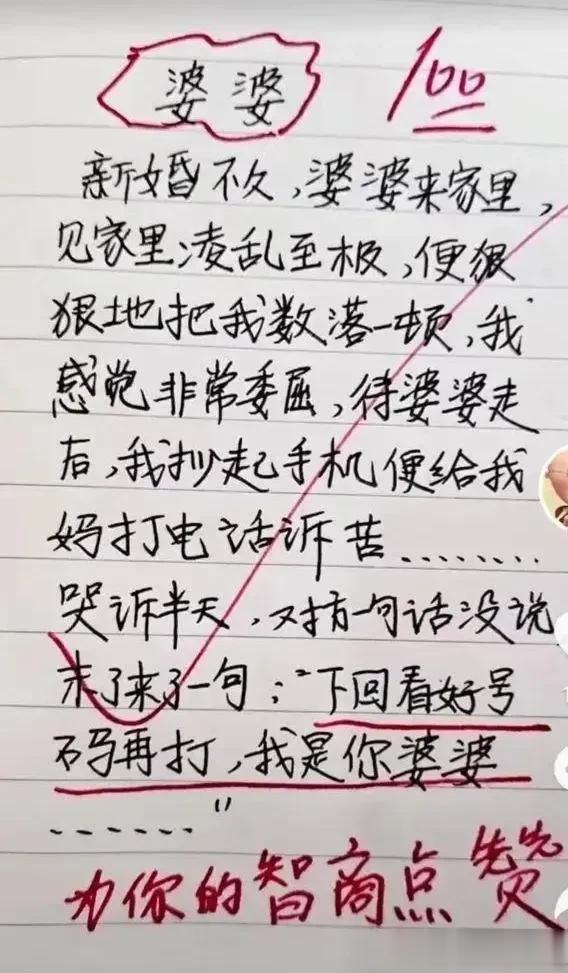 婆婆
100
新婚不久，婆婆来家里，
见家里凌乱至极，便狠
狠地把我数落一顿，我
感觉非常委屈，待婆婆走
后，我抄起手机便给我
妈打电话诉苦………
哭诉半天，对方一句话没说
末了来了一句：“下回看好号
码再打，我是你婆婆
……”
为你的智商点赞